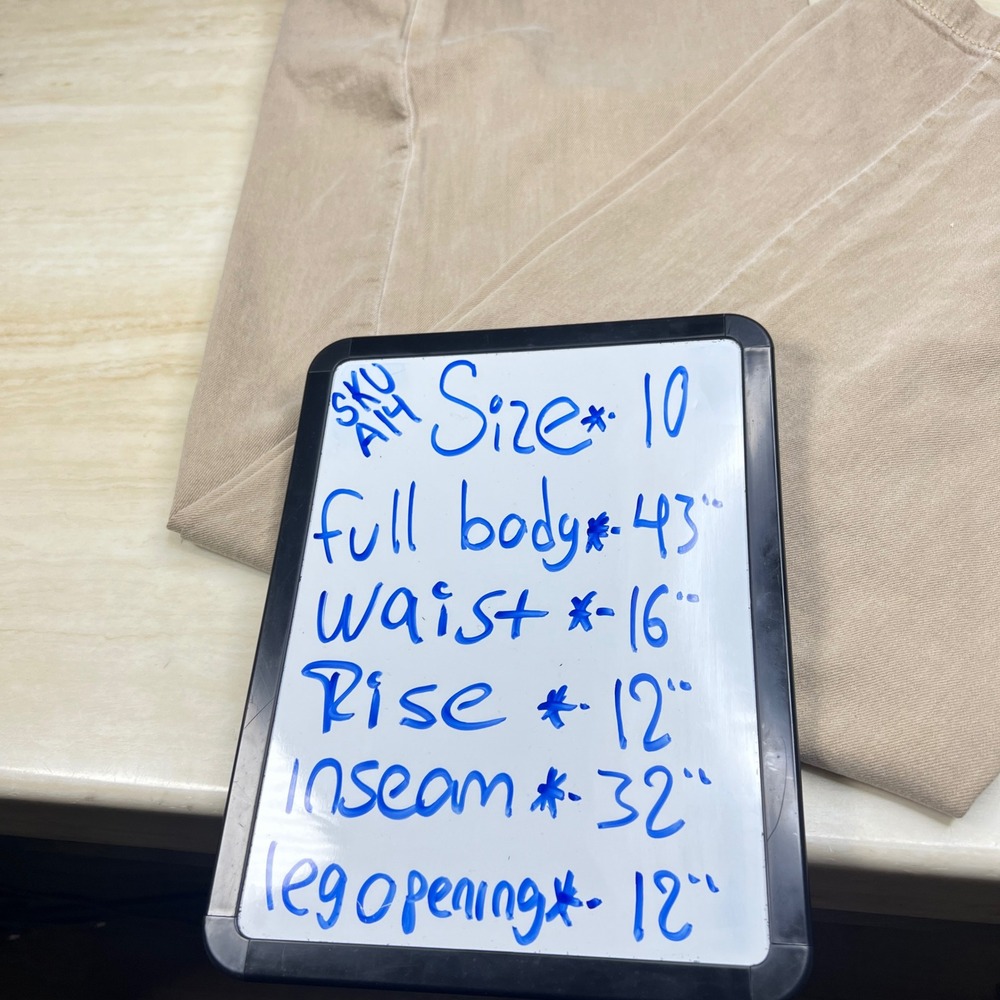 SKU
A14
Size*- 10
full body*- 43"
waist *- 16"
Rise *- 12"
inseam *- 32"
leg opening*- 12"